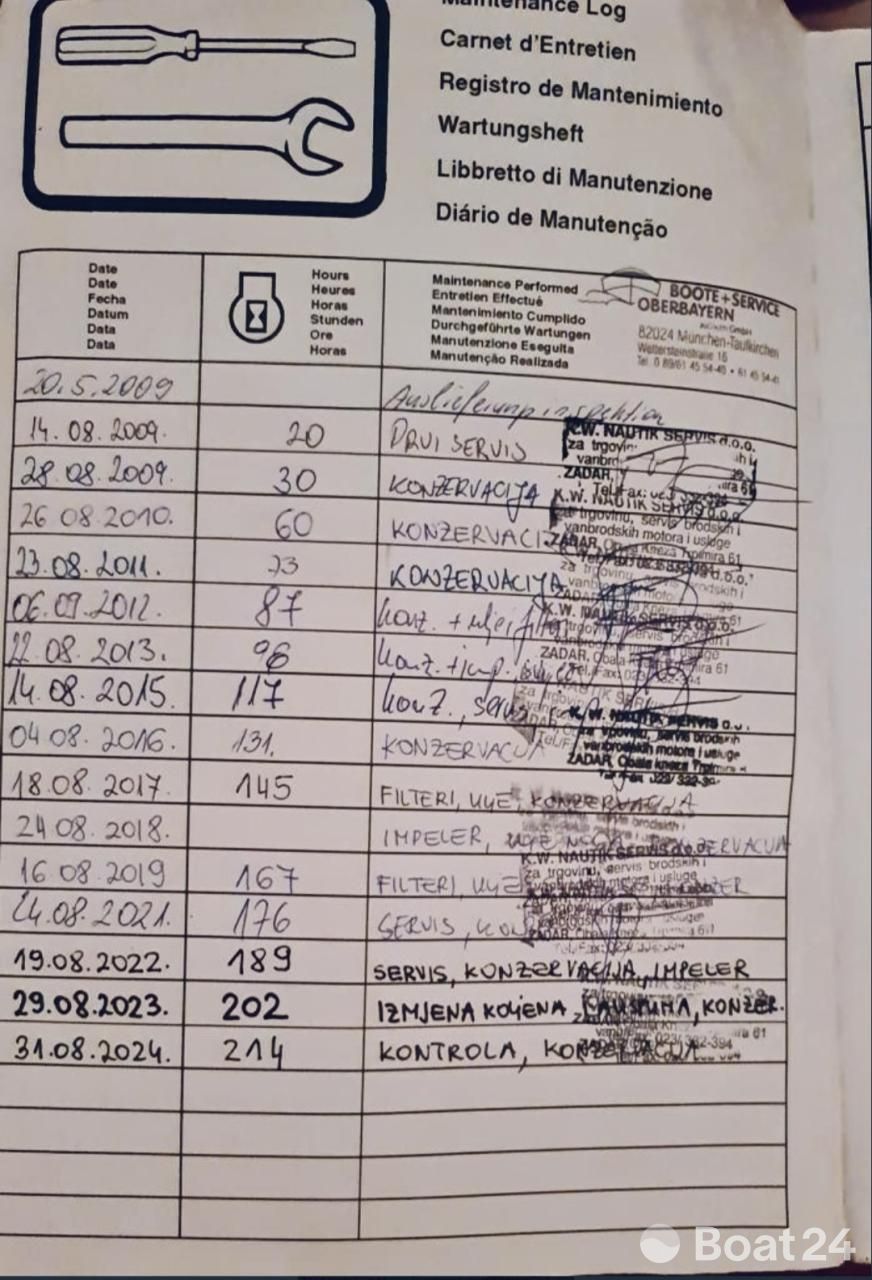 Maintenance Log
Carnet d'Entretien
Registro de Mantenimiento
Wartungsheft
Libbretto di Manutenzione
Diário de Manutenção
Date
Date
Fecha
Datum
Data
Data
Hours
Heures
Horas
Stunden
Ore
Horas
Maintenance Performed
Entretien Effectué
Mantenimiento Cumplido
Durchgeführte Wartungen
Manutenzione Eseguita
Manutenção Realizada
BOOTE + SERVICE
OBERBAYERN
82024 München-Taufkirchen
Wettersteinstraße 16
Tel. 0 89/61 45 54-40 • 61 45 54-41
20.5.2009 Auslieferungsinspektion
14.08.2009. 20 PRVI SERVIS
K.W. NAUTIK SERVIS d.o.o.
za trgovin
vanbro
ZADAR,
28.08.2009. 30 KONZERVACIJA
K.W. NAUTIK SERVIS d.o.o.
za trgovinu, servis brodskih i
vanbrodskih motora i usluge
ZADAR, Obala Kneza Trpimira 61
26 08.2010. 60 KONZERVACI
23.08.2011. 73 KONZERVACIJA
06.09.2012. 87 konz. +
22.08.2013. 96 konz.
14.08.2015. 117 konz., servis
04 08.2016. 131. KONZERVACIJA
K.W. NAUTIK SERVIS
servis brodskih
vanbrodskih motora i usluge
ZADAR, Obala kneza Trpimira
18.08.2017. 145 FILTERI, ULJE, KONZERVACIJA
24.08.2018. IMPELER, ULJE KONZERVACIJA
16.08.2019 167 FILTERI, ULJE
K.W. NAUTIK SERVIS d.o.o.
za trgovinu, servis brodskih i
vanbrodskih motora i usluge
24.08.2021. 176 SERVIS,
19.08.2022. 189 SERVIS, KONZERVACIJA, IMPELER
29.08.2023. 202 IZMJENA KOLJENA AUSPUHA, KONZER.
31.08.2024. 214 KONTROLA, KONZERVACIJA
Boat24